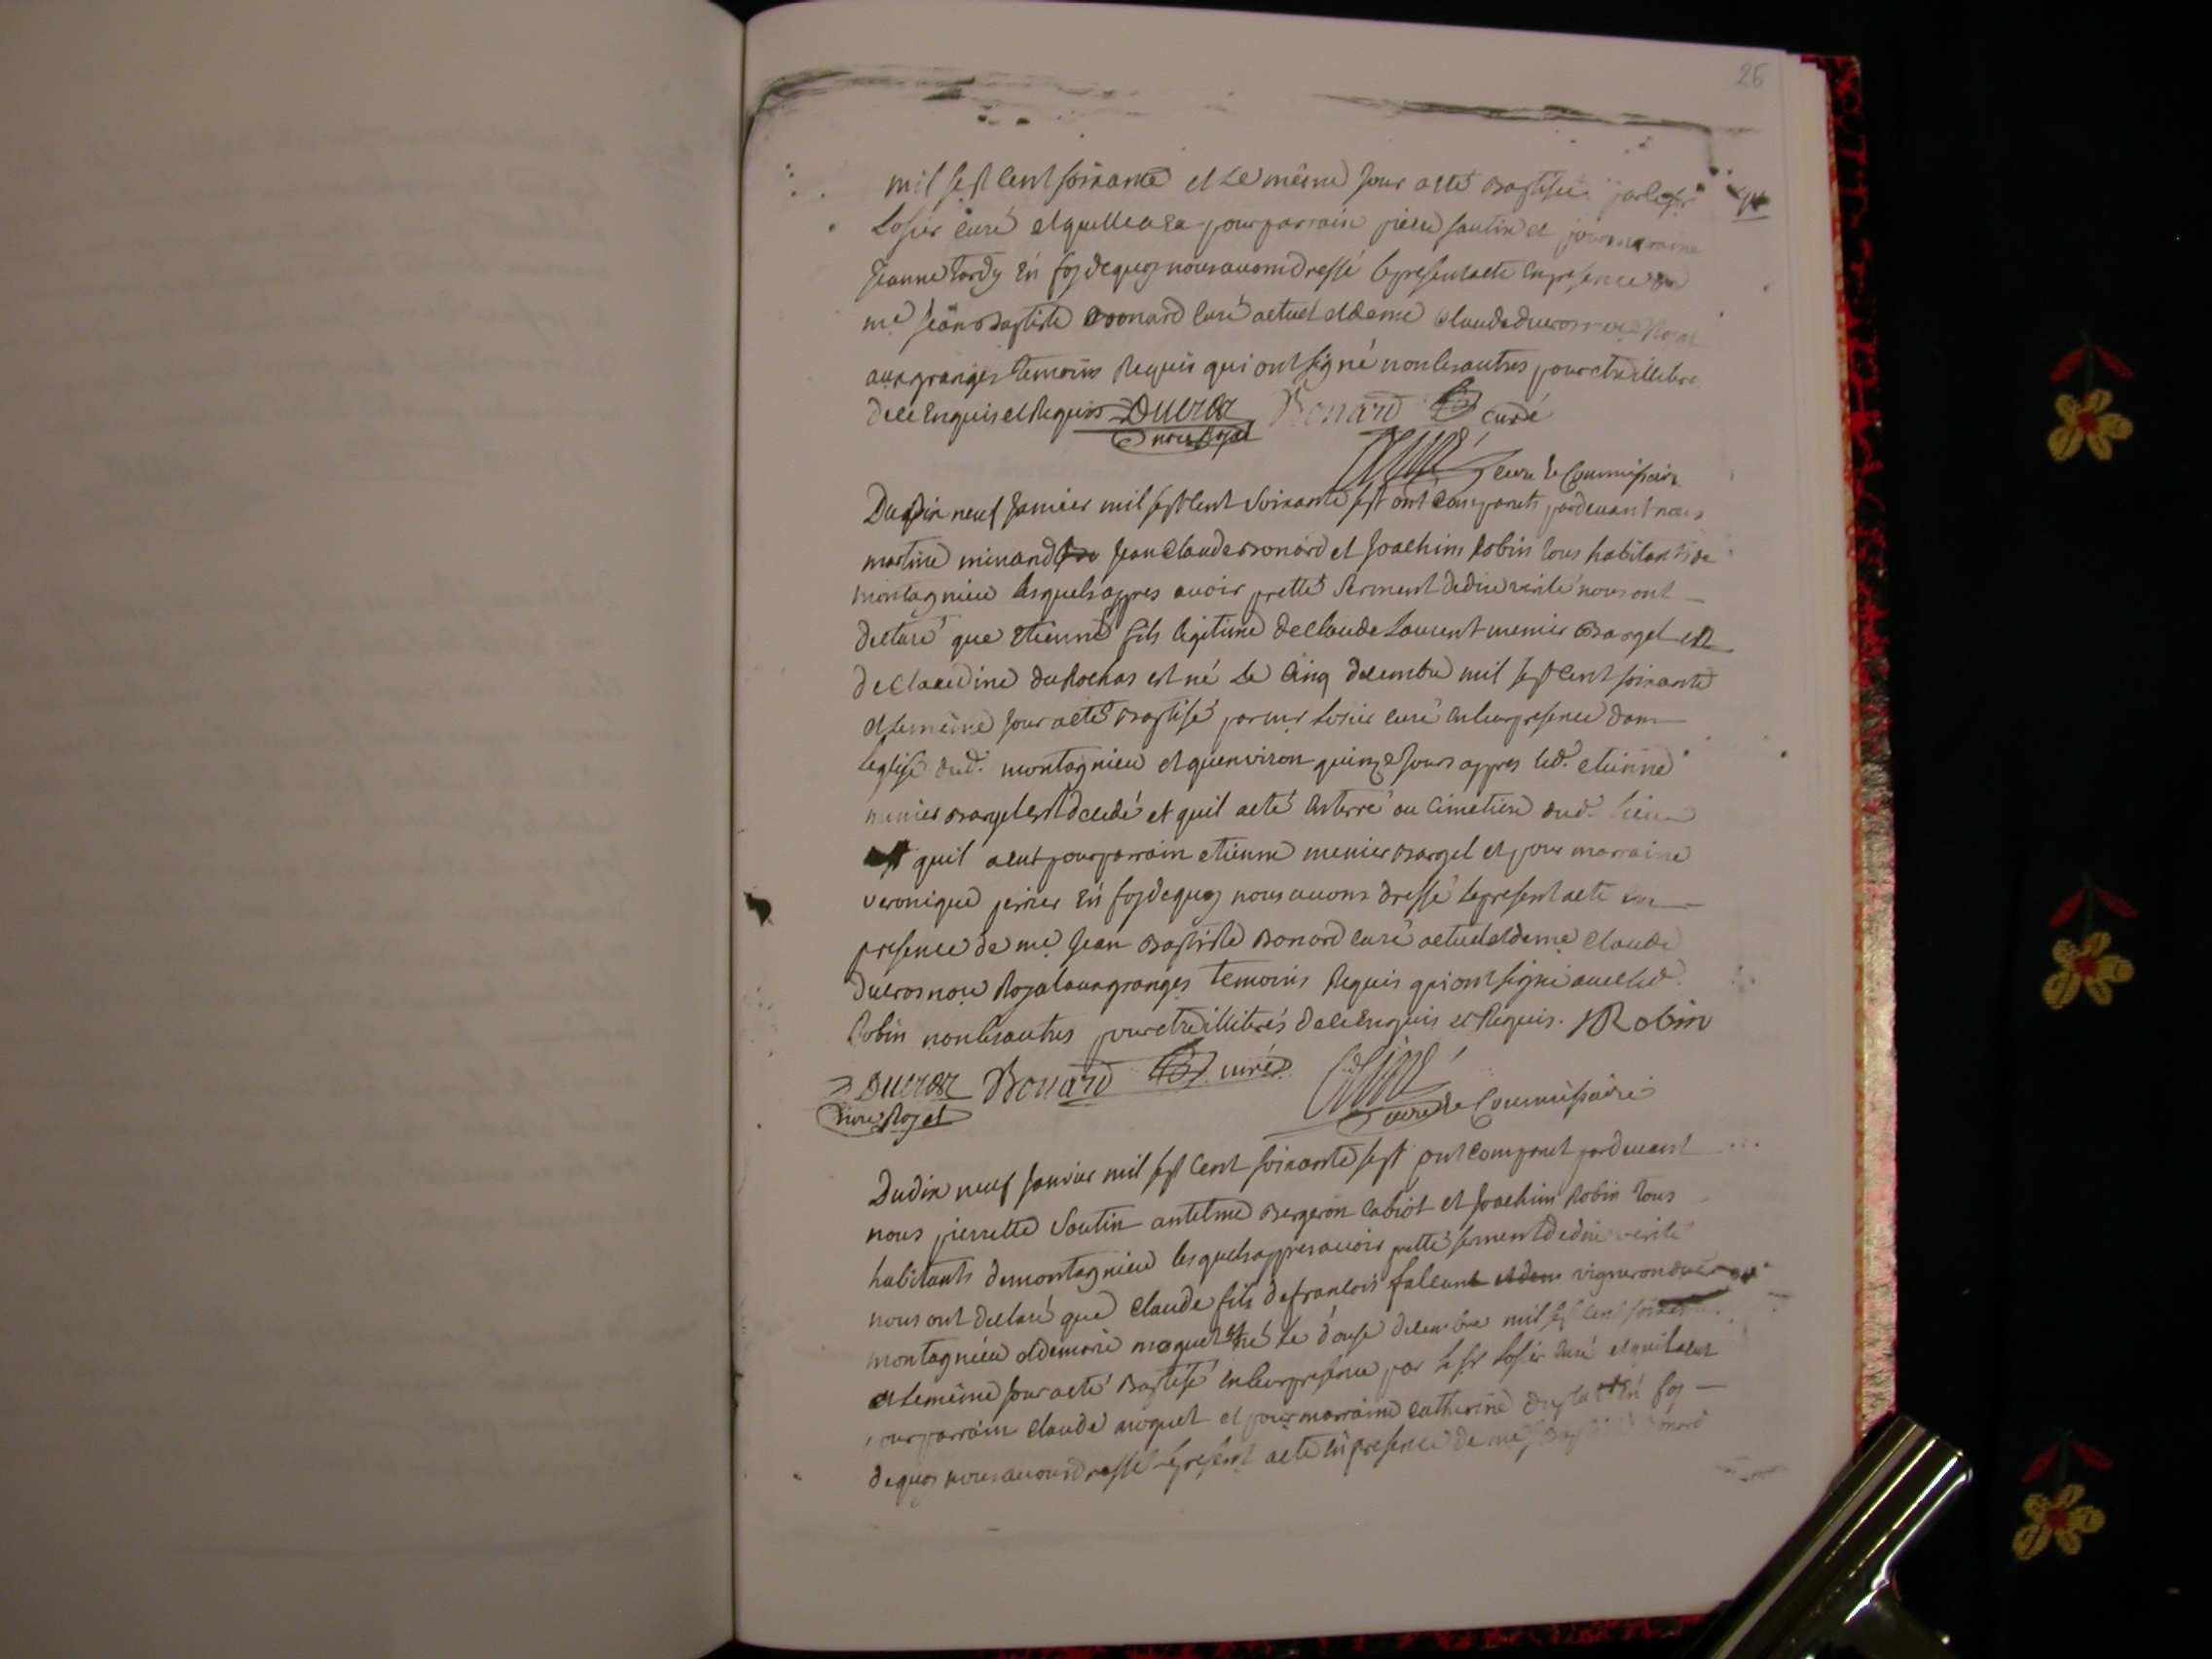 26
mil sept cent soixante et le même jour a eté baptisée par le sr
Losier curé et quelle a eu pour parrain piere santin et pour maraine
Jeanne tardy En foy de quoy nous avons dressé le present acte en presence de
me Jean Baptiste Bonard curé actuel et de me Claude ducros nore Royal
aux granges temoins Requis qui ont signé non les autres pour etre illitere
de ce Enquis et Requis Ducros Bonard curé
nore Royal
curé & Commissaire
Du dix neuf Janvier mil sept cent soixante sept ont comparuts pardevant nous
martine minand Jean Claude Bonard et Joachim Robin tous habitants de
montagnieu lesquels appres avoir pretté serment de dire verité nous ont
declaré que Etienne fils legitime de Claude Laurent menier Bargel et
de Claudine du Rochas est né Le Cinq decembre mil sept cent soixante
et le même jour a eté Baptisé par mr Losier curé en leur presence dans
leglise dud. montagnieu et quenviron quinze Jours appres led. etienne
menier Bargel est decedé et quil a eté enterré au Cimetiere dud. lieu
et quil a eut pour parrain etienne menier Bargel et pour marraine
veronique perrier En foy de quoy nous avons dressé le present acte en
presence de me Jean Baptiste Bonard curé actuel et de me Claude
ducros nore Royal aux granges temoins Requis qui ont signé avec led.
Robin non les autres pour etre illiterés de ce Enquis et Requis. JRobin
Ducros Bonard curé
nore Royal
curé & Commissaire
Du dix neuf Janvier mil sept Cent soixante sept ont comparut pardevant
nous pierrette Santin antelme Bergeron Cabiot et Joachim Robin tous
habitants de montagnieu lesquels appres avoir pretté serment de dire verité
nous ont declaré que Claude fils de francois falcant vigneron dud.
montagnieu et de marie moquet est né Le douse decembre mil sept cent soixante
et le même jour a eté Baptisé en leur presence par le sr Losier curé et quil a eut
pour parrain Claude moquet et pour marraine Catherine En foy
de quoy nous avons dressé le present acte en presence de me Bonard